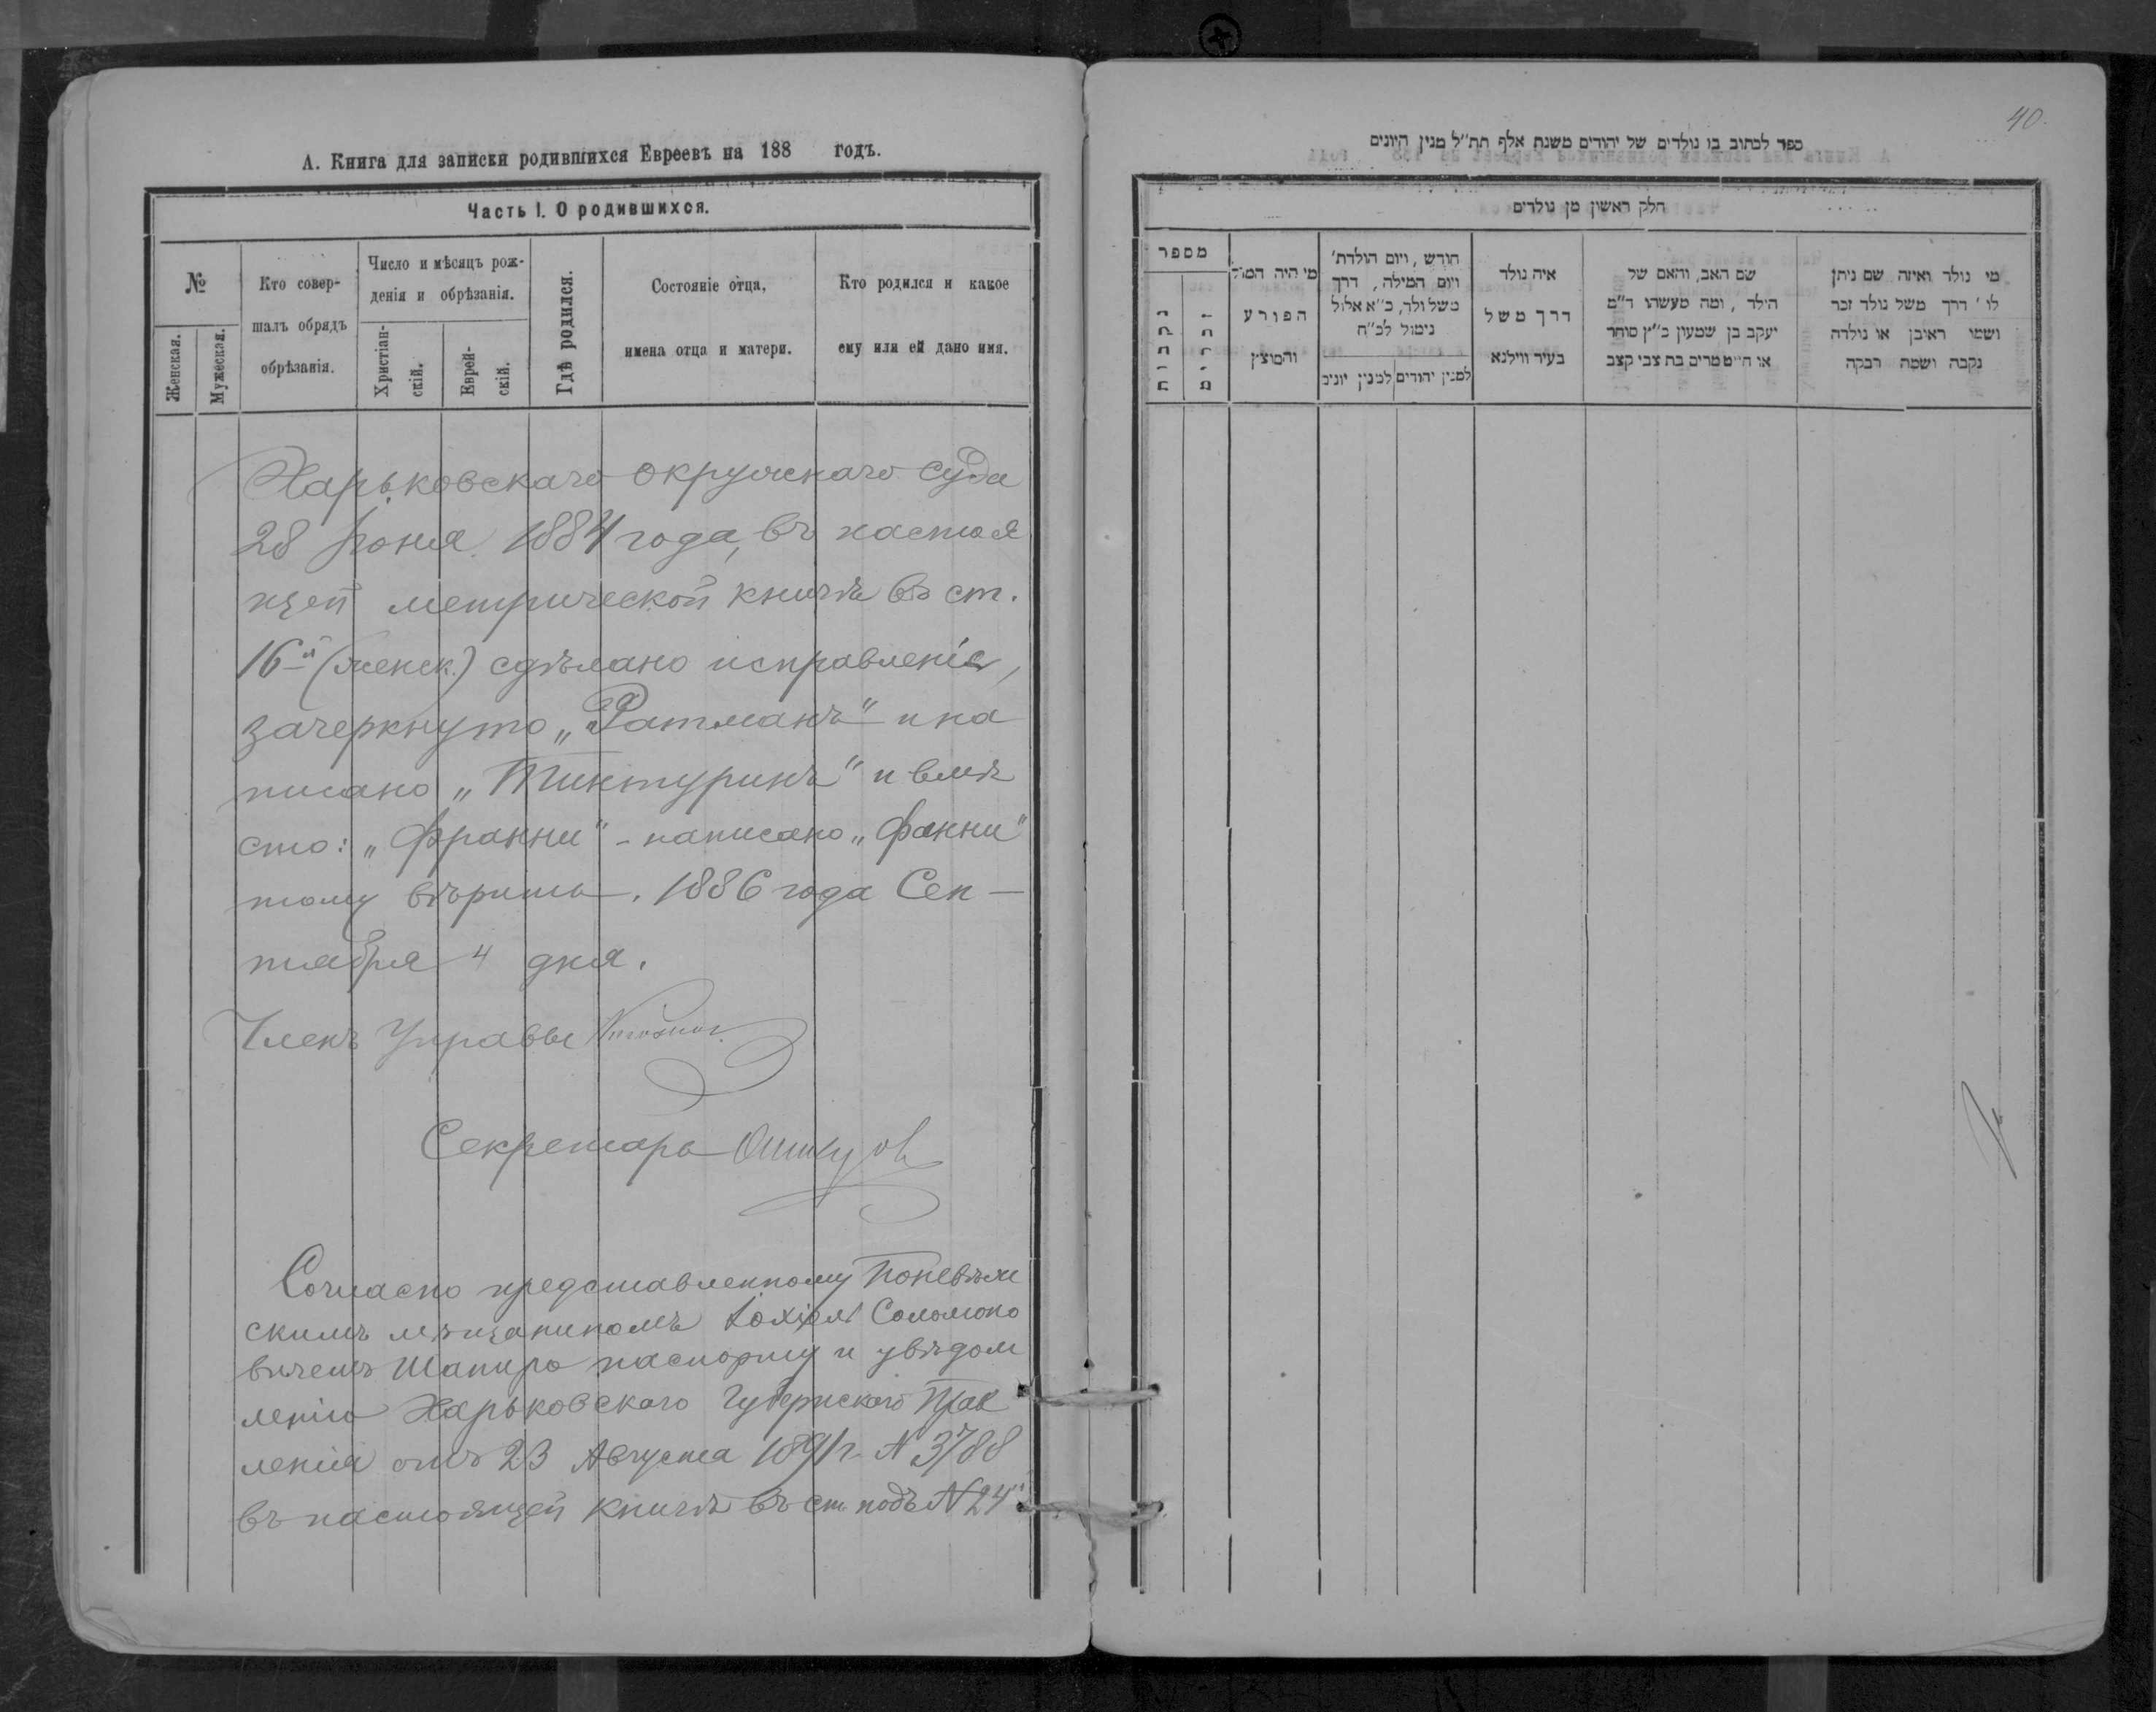 А. Книга для записки родившихся Евреевъ на 188 годъ.
Часть I. О родившихся.
№
Женская.
Мужеская.
Кто совер-
шалъ обрядъ
обрѣзанія.
Число и мѣсяцъ рож-
денія и обрѣзанія.
Христіан-
скій.
Еврей-
скій.
Гдѣ родился.
Состояніе отца,
имена отца и матери.
Кто родился и какое
ему или ей дано имя.
Харьковскаго окружнаго суда
28 Іюня 1884 года, въ настоя
щей метрической книгѣ въ ст.
16й (женск.) сдѣлано исправленіе,
зачеркнуто „Ратманъ" и на
писано „Тинктуринъ" и вмѣ
сто: „Франни" - написано „Фанни"
тому вѣрить. 1886 года Сен—
тября 4 дня.
Членъ Управы
Секретарь
Согласно представленному Поневѣж
скимъ мѣщаниномъ Соломоно
вичемъ Шапиро паспорту и увѣдом
ленію Харьковскаго Губернскаго Прав
ленія отъ 23 Августа 1891 г. № 3788
въ настоящей книгѣ въ ст. подъ № 24й
40.
ספר לכתוב בו נולדים של יהודים משנת אלף תת״ל מנין היונים
חלק ראשון מן נולדים
מספר
נקבות
זכרים
מי היה המול
הפורע
והמוצץ
חודש, ויום הולדת'
ויום המילה, דרך
משל ולך, כ״א אלול
נימול לכ״ח
למנין יהודים
למנין יונים
איה נולד
דרך משל
בעיר ווילנא
שם האב, והאם של
הילד, ומה מעשהו ד״מ
יעקב בן שמעון כ״ץ סוחר
או חייט מרים בת צבי קצב
מי נולד ואיזה שם ניתן
לו' דרך משל נולד זכר
ושמו ראיבן או נולדה
נקבה ושמה רבקה